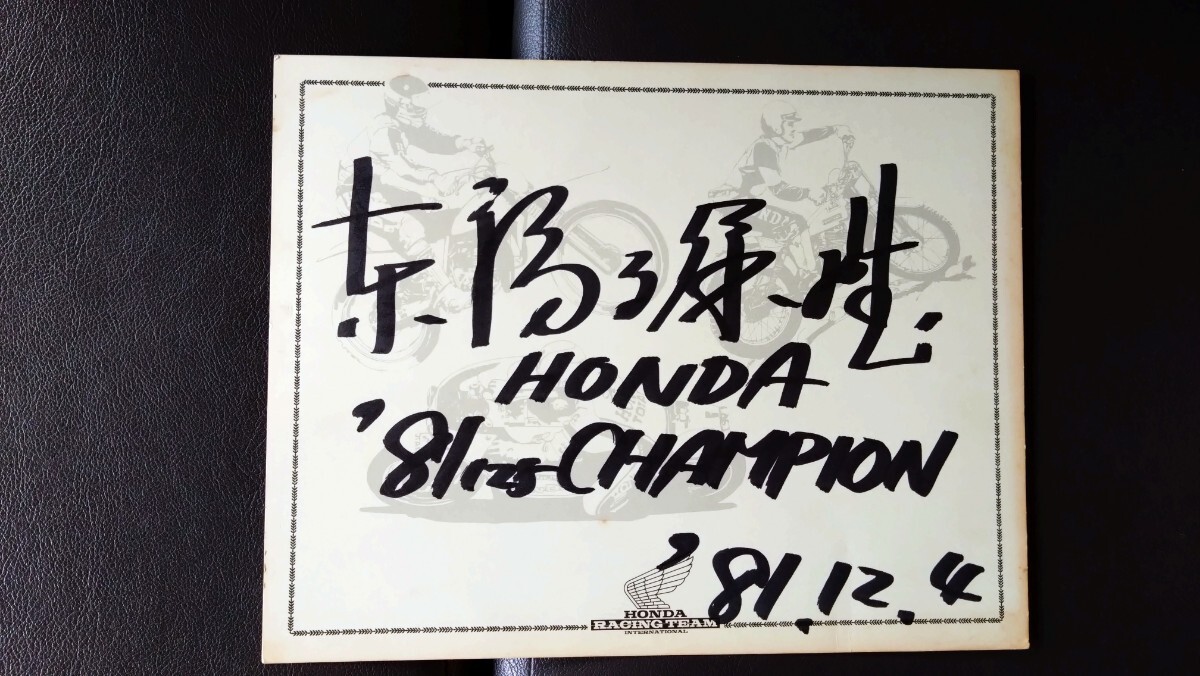 東福寺保雄
HONDA
'81 125 CHAMPION
'81.12.4
HONDA
RACING TEAM
INTERNATIONAL